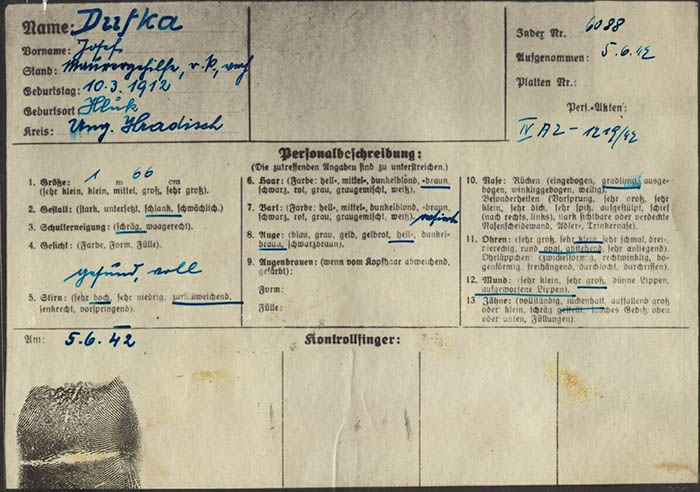 Name: Dufka
Vorname: Josef
Stand: Maurergehilfe, r. k., verh
Geburtstag: 10.3.1912
Geburtsort Hluk
Kreis: Ung. Hradisch
Index Nr. 6088
Aufgenommen: 5.6.42
Platten Nr.:
Pers.-Akten:
IV A2 - 1219/42
Personalbeschreibung:
(Die zutreffenden Angaben sind zu unterstreichen.)
1. Größe: 1 m 66 cm
(sehr klein, klein, mittel, groß, sehr groß).
2. Gestalt: (stark, untersetzt, schlank, schwächlich).
3. Schulterneigung: (schräg, waagerecht).
4. Gesicht: (Farbe, Form, Fülle).
gesund, voll
5. Stirn: (sehr hoch, sehr niedrig, zurückweichend,
senkrecht, vorspringend).
6. Haar: (Farbe: hell-, mittel-, dunkelblond, -braun,
schwarz, rot, grau, graugemischt, weiß).
7. Bart: (Farbe: hell-, mittel-, dunkelblond, -braun,
schwarz, rot, grau, graugemischt, weiß). rasiert
8. Auge: (blau, grau, gelb, gelbrot, hell-, dunkel-
braun, schwarzbraun).
9. Augenbrauen: (wenn vom Kopfhaar abweichend,
gefärbt):
Form:
Fülle:
10. Nase: Rücken (eingebogen, gradlinig, ausge-
bogen, winkliggebogen, wellig).
Besonderheiten (Vorsprung, sehr groß, sehr
klein, sehr dick, sehr spitz, aufgestülpt, schief
(nach rechts, links), stark sichtbare oder verdeckte
Nasenscheidewand, Adler-, Trinkernase).
11. Ohren: (sehr groß, sehr klein, sehr schmal, drei-
viereckig, rund, oval, abstehend, sehr anliegend).
Ohrläppchen: (zwickelförmig, rechtwinklig, bo-
genförmig, freihängend, durchlocht, durchrissen).
12. Mund: (sehr klein, sehr groß, dünne Lippen,
aufgeworfene Lippen).
13. Zähne: (vollständig, lückenhaft, auffallend groß
oder klein, schräg gestellt, falsches Gebiß oben
oder unten, Füllungen).
Am: 5.6.42
Kontrollfinger: